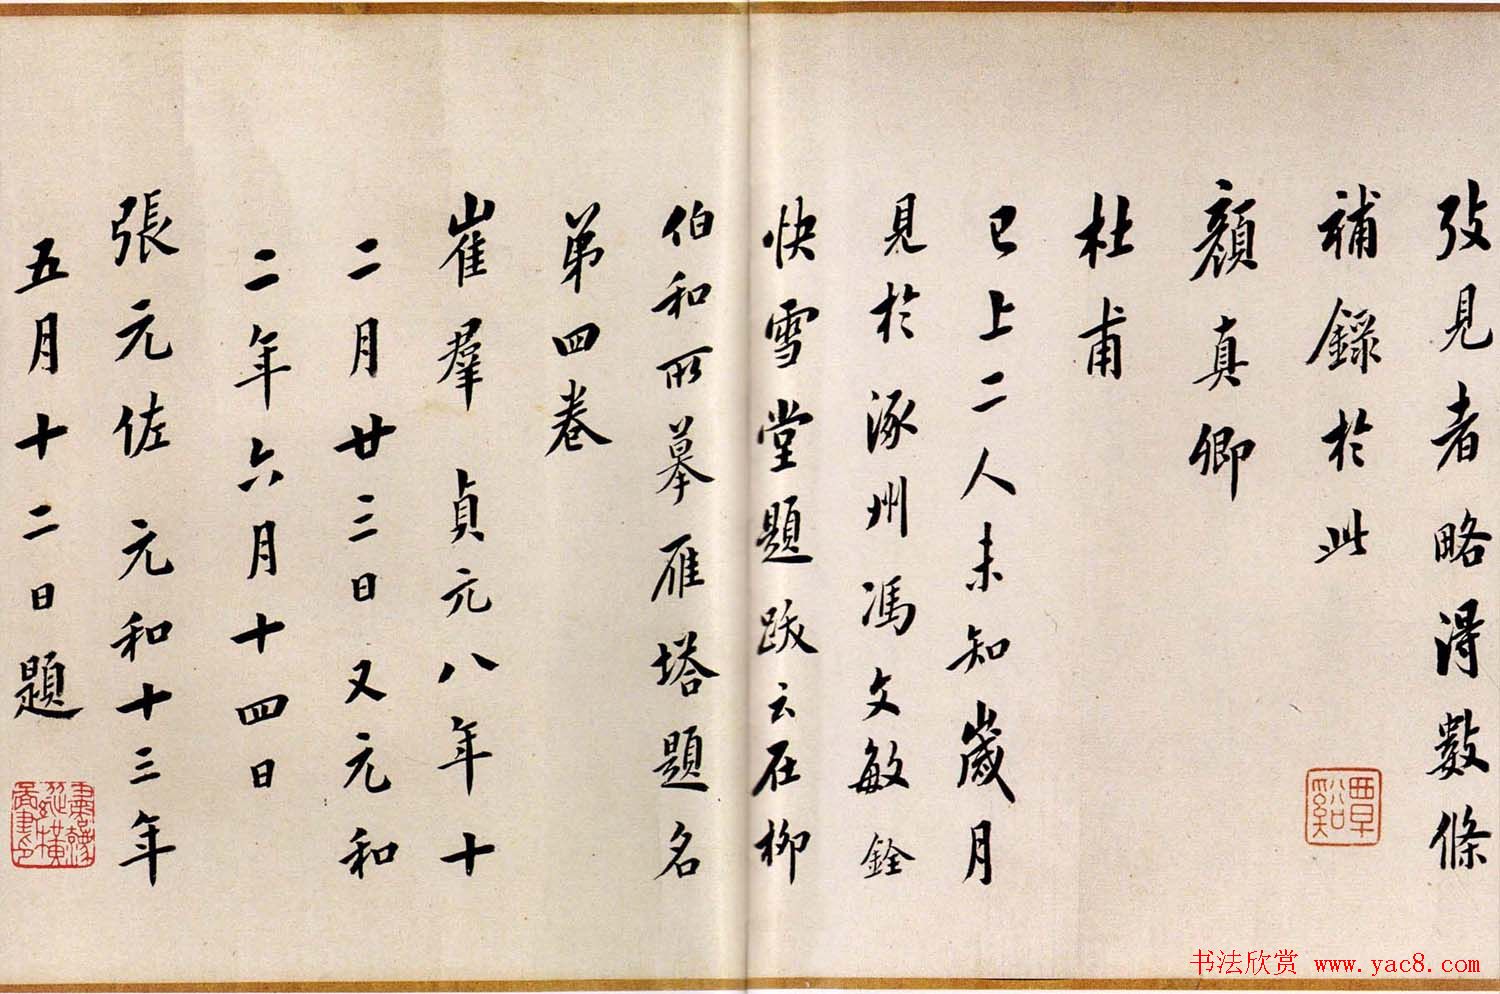 攷見者略得數條
補錄於此
顏真卿
杜甫
已上二人未知歲月
見於涿州馮文敏銓
快雪堂題跋云在柳
伯和所摹雁塔題名
第四卷
崔羣 貞元八年十
二月廿三日又元和
二年六月十四日
張元佐 元和十三年
五月十二日題
覃谿
书法欣赏 www.yac8.com